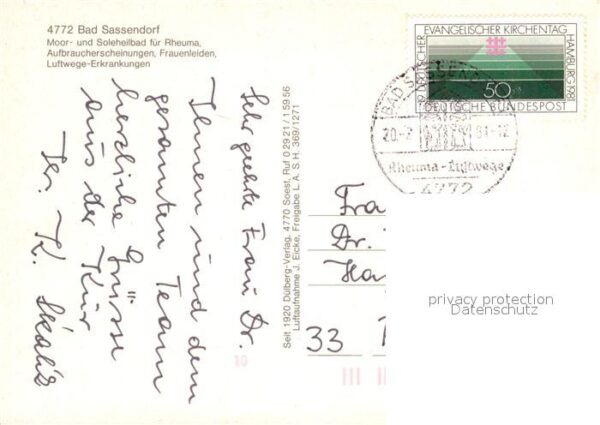 4772 Bad Sassendorf
Moor- und Soleheilbad für Rheuma,
Aufbraucherscheinungen, Frauenleiden,
Luftwege-Erkrankungen
Sehr geehrte Frau Dr.
Ihnen und dem
gesamten Team
herzliche Grüsse
aus der Kur
Ihr. K.
Seit 1920 Dülberg-Verlag, 4770 Soest, Ruf 0 29 21 / 1 59 56
Luftaufnahme J. Eicke, Freigabe L. A. S H. 369/1271
19. DEUTSCHER EVANGELISCHER KIRCHENTAG HAMBURG 1981
50
DEUTSCHE BUNDESPOST
BAD SASSENDORF
20.-7 81-12
Rheuma-Luftwege
4772
Fra
Dr.
Ha
33
10
privacy protection
Datenschutz